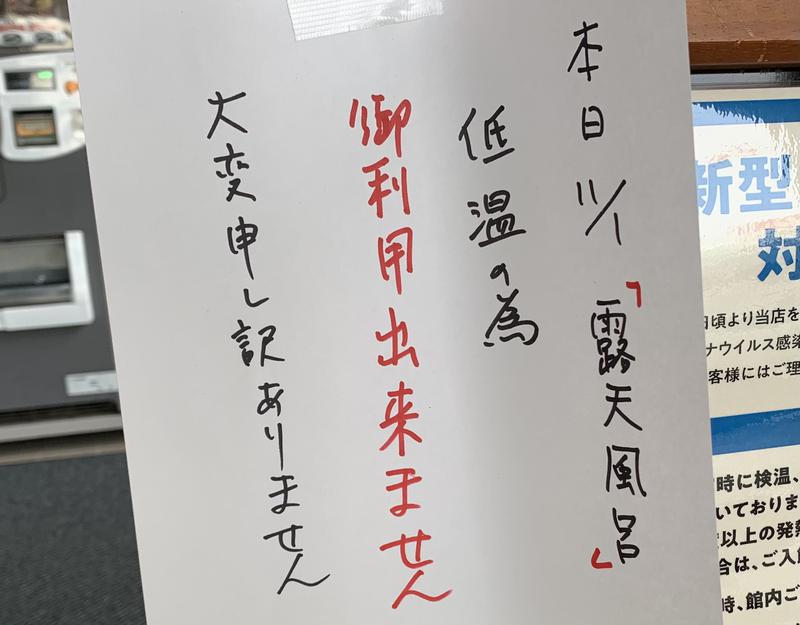 本日 11/1 「露天風呂」
低温の為
御利用出来ません
大変申し訳ありません
新型
対
日頃より当店を
ナウイルス感染
客様にはご理
時に検温、
いておりま
以上の発熱
合は、ご入
時、館内ご